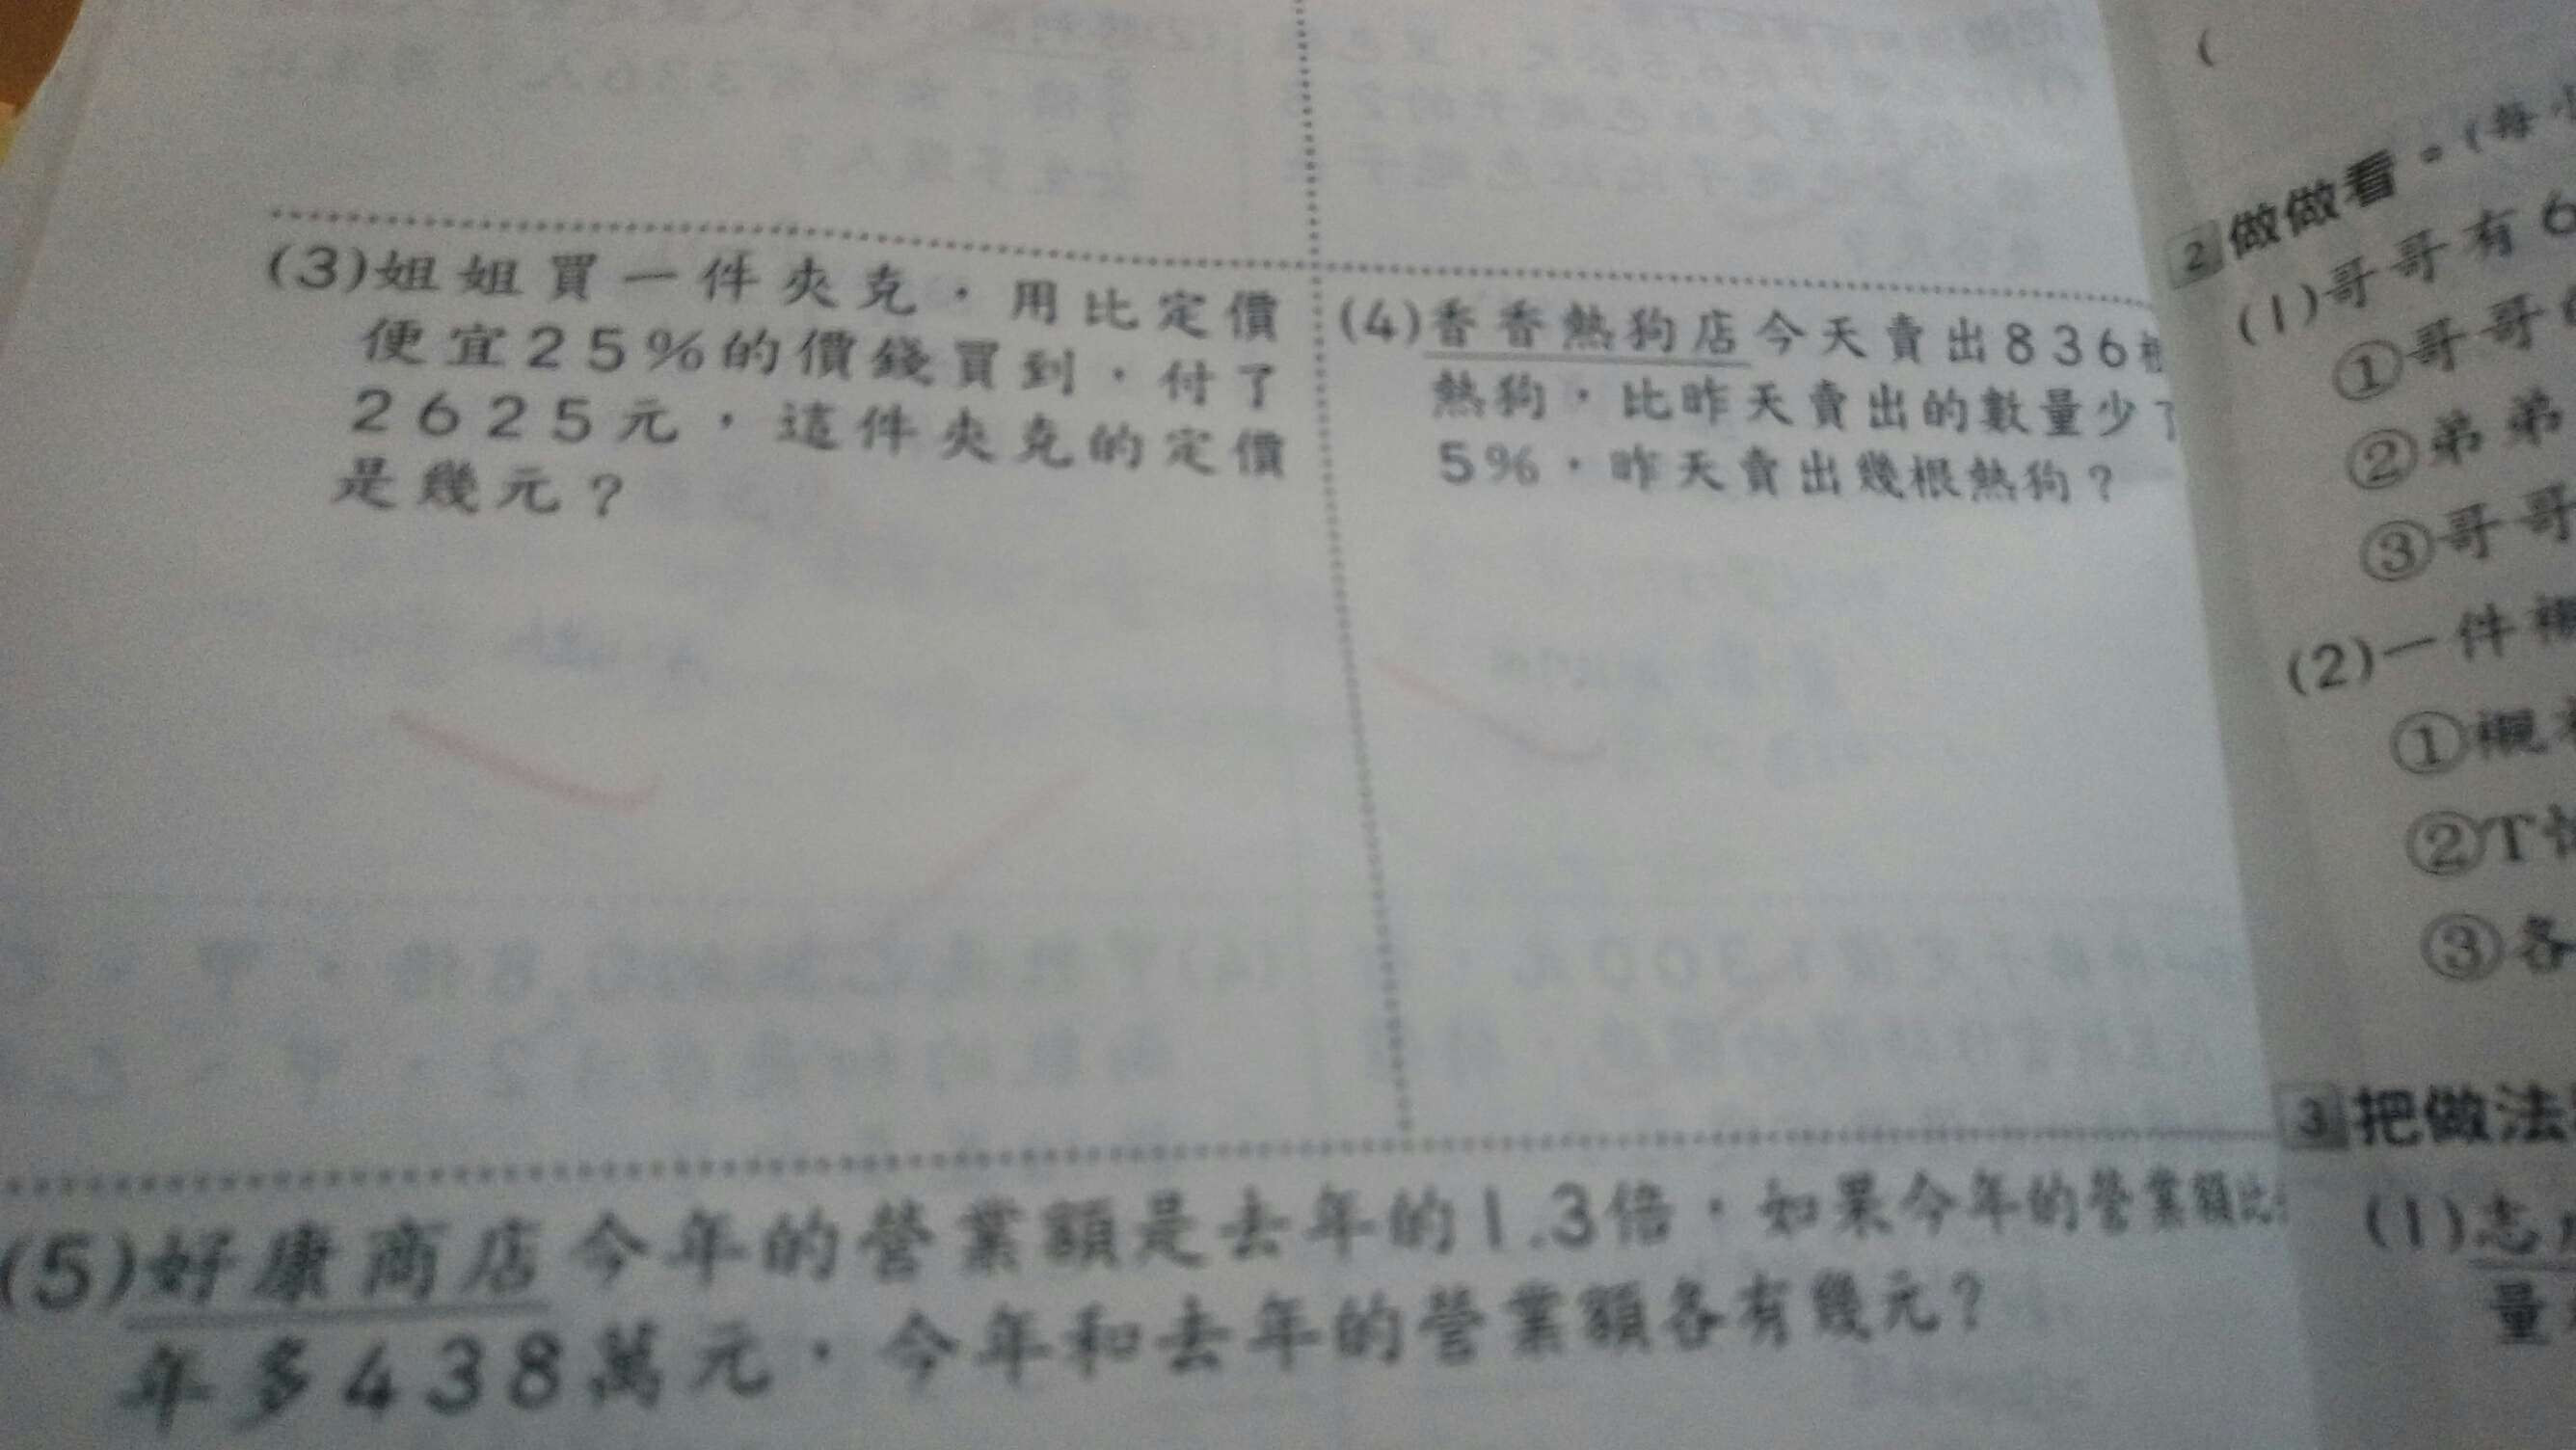 (3)姐姐買一件夾克，用比定價
便宜25%的價錢買到，付了
2625元，這件夾克的定價
是幾元？
(4)香香熱狗店今天賣出836根
熱狗，比昨天賣出的數量少了
5%，昨天賣出幾根熱狗？
(5)好康商店今年的營業額是去年的1.3倍，如果今年的營業額比
年多438萬元，今年和去年的營業額各有幾元？
2 做做看。(每
(1)哥哥有6
①哥哥
②弟弟
③哥哥
(2)一件襯
①襯衫
②T恤
③各
3 把做法
(1)志
量